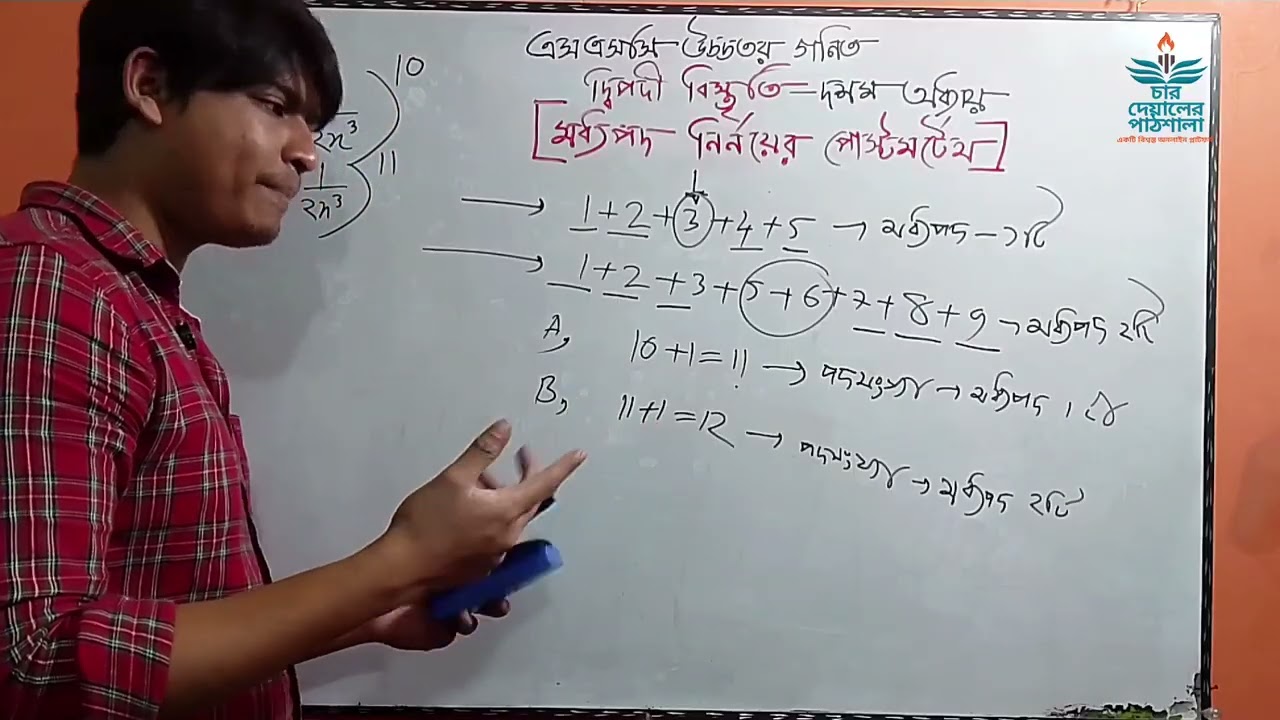 এসএসসি উচ্চতর গনিত
দ্বিপদী বিস্তৃতি – দশম অধ্যায়
[মধ্যপদ নির্নয়ের পোস্টমর্টেম]
চার
দেয়ালের
পাঠশালা
একটি বিশ্বস্ত অনলাইন প্লাটফর্ম
10
2x³
11
1
2x³
→ 1 + 2 + 3 + 4 + 5 → মধ্যপদ – ১টি
→ 1 + 2 + 3 + 5 + 6 + 7 + 8 + 9 → মধ্যপদ ২টি
A, 10 + 1 = 11 → পদসংখ্যা → মধ্যপদ ১টি
B, 11 + 1 = 12 → পদসংখ্যা → মধ্যপদ ২টি